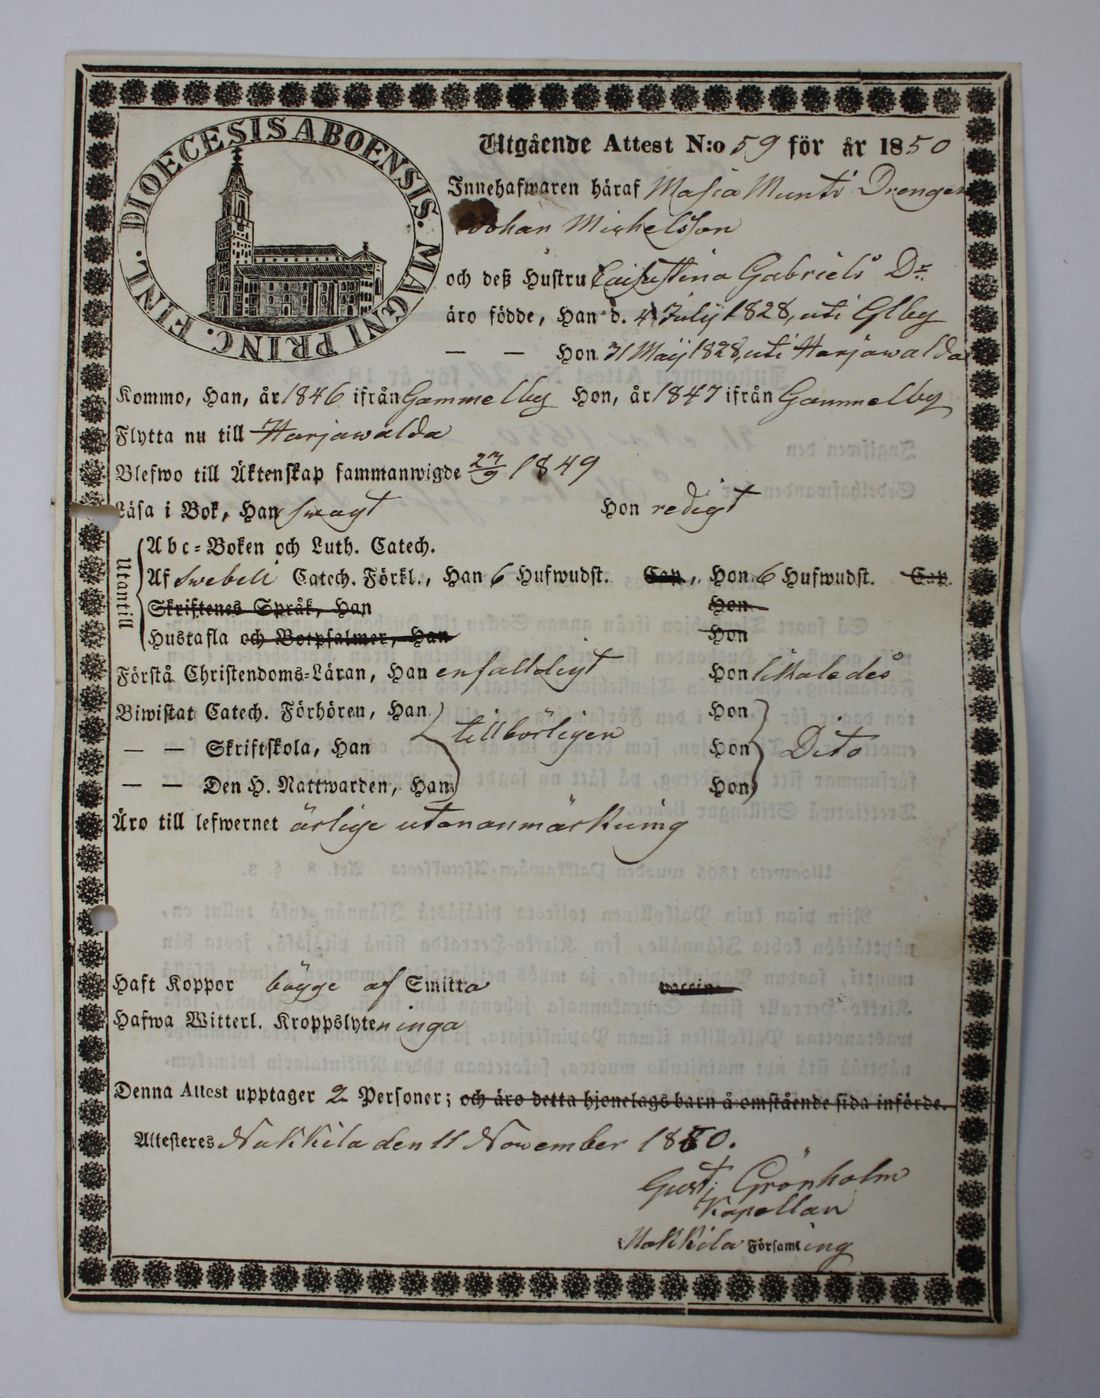 DIOECESIS ABOENSIS. MAGNI PRINC. FINL.
Utgående Attest N:o 59 för år 1850
Innehafwaren häraf Masia Munti Drengen
Johan Michelsson
och deß Hustru Caisa Stina Gabriels Dr
äro födde, Han d. 4 July 1828, uti Glby
— — Hon 31 Maij 1828, uti Harjawalda
Kommo, Han, år 1846 ifrån Gammelby Hon, år 1847 ifrån Gammelby
Flytta nu till Harjawalda
Blefwo till Äktenskap sammanwigde 27/9 1849
Läsa i Bok, Han swagt Hon redigt
Utantill
Abc-Boken och Luth. Catech.
Af Swebeli Catech. Förkl., Han 6 Hufwudst. Cap., Hon 6 Hufwudst. Cap.
Skriftenes Språk, Han Hon
Hustafla och Botpsalmer, Han Hon
Förstå Christendoms-Läran, Han enfaldigt Hon likaledes
Biwistat Catech. Förhören, Han Hon
— — Skriftskola, Han tillbörligen Hon Dito
— — Den H. Nattwarden, Han Hon
Äro till lefwernet ärlige utan anmärkning
Haft Koppor bägge af Smitta vaccin
Hafwa Witterl. Kroppslyten inga
Denna Attest upptager 2 Personer; och äro detta hjonelags barn å omstående sida införde.
Attesteres Nakkila den 11 November 1850.
Gust: Grönholm
Kapellan
Nakkila Församling